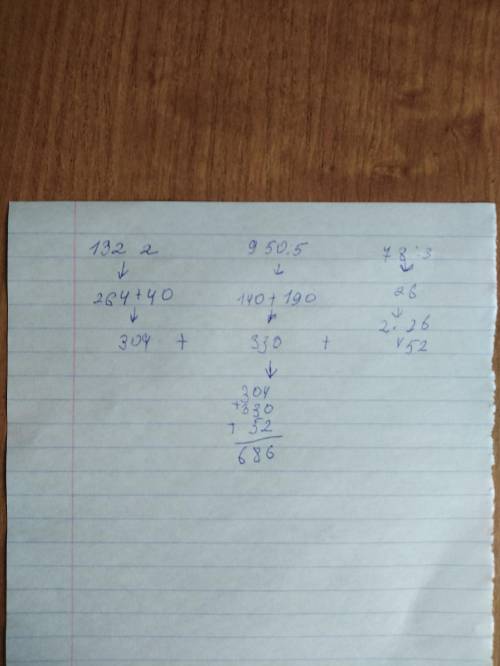 132 2 950:5 78:3
↓ ↓ ↓
264+40 140+190 26
↓ ↓ ↓
304 + 330 + 2·26
52
↓
304
+330
+ 52
686